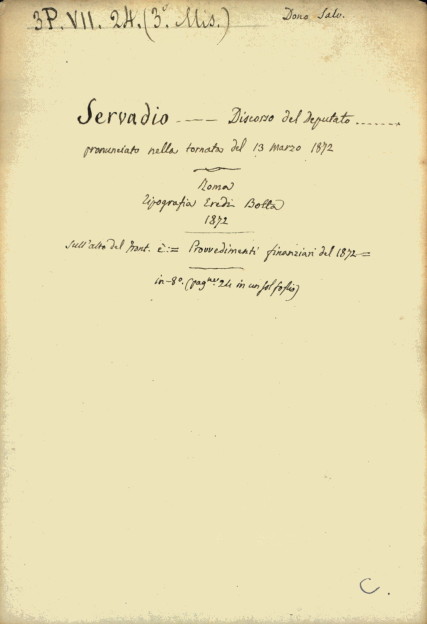 3P. VII. 24. (3º Mis.) Dono Salv.
Servadio ---- Discorso del Deputato ........
pronunciato nella tornata del 13 marzo 1872
Roma
Tipografia Eredi Botta
1872
Sull'alto del front. è:= Provvedimenti finanziari del 1872 =
in-8º. (pag.ne 24 in un sol foglio)
C.